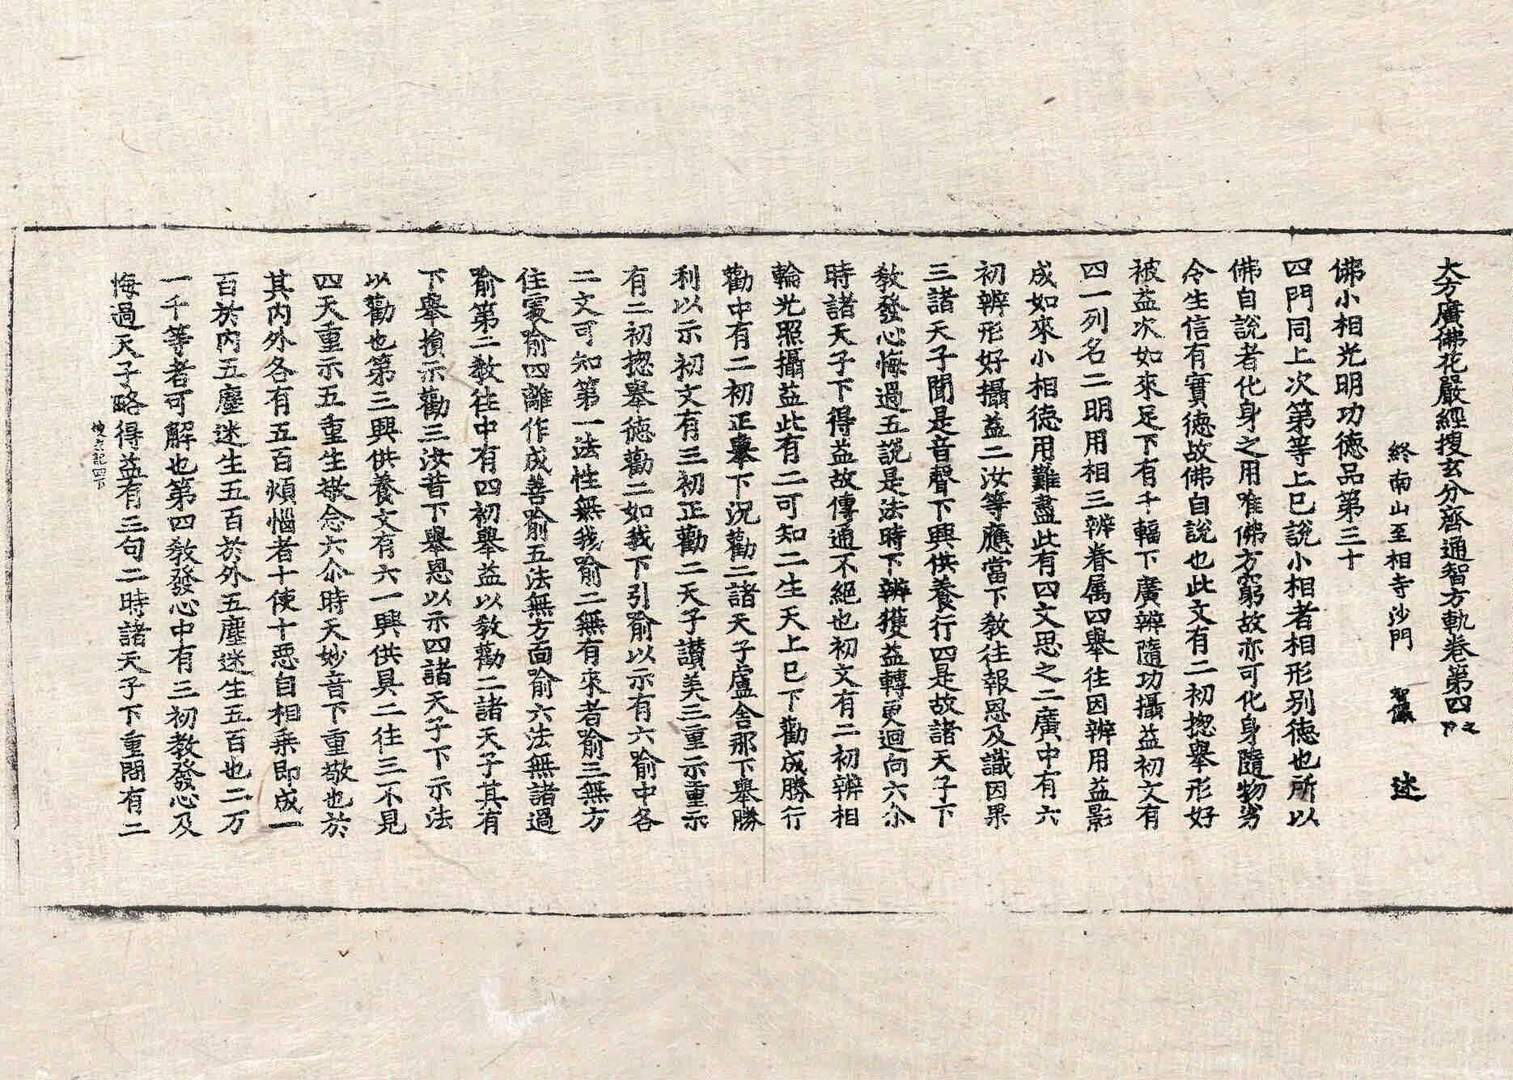 大方廣佛花嚴經搜玄分齊通智方軌卷第四之下
終南山至相寺沙門 智儼 述
佛小相光明功德品第三十
四門同上次第等上已說小相者相形別德也所以
佛自說者化身之用唯佛方窮故亦可化身隨物劣
令生信有實德故佛自說也此文有二初揔舉形好
被益次如來足下有千輻下廣辨隨功攝益初文有
四一列名二明用相三辨眷属四舉往因辨用益影
成如來小相德用難盡此有四文思之二廣中有六
初辨形好攝益二汝等應當下教往報恩及識因果
三諸天子聞是音聲下興供養行四是故諸天子下
教發心悔過五說是法時下辨獲益轉更迴向六尒
時諸天子下得益故傳通不絕也初文有二初辨相
輪光照攝益此有二可知二生天上已下勸成勝行
勸中有二初正舉下況勸二諸天子盧舍那下舉勝
利以示初文有三初正勸二天子讚美三重示重示
有二初揔舉德勸二如我下引喻以示有六喻中各
二文可知第一法性無我喻二無有來者喻三無方
住處喻四離作成善喻五法無方面喻六法無諸過
喻第二教往中有四初舉益以教勸二諸天子其有
下舉損示勸三汝昔下舉恩以示四諸天子下示法
以勸也第三興供養文有六一興供具二往三不見
四天重示五重生敬念六尒時天妙音下重敬也於
其內外各有五百煩惱者十使十惡自相乘即成一
百於內五塵迷生五百於外五塵迷生五百也二万
一千等者可解也第四教發心中有三初教發心及
悔過天子略得益有三句二時諸天子下重問有二
搜玄記四下